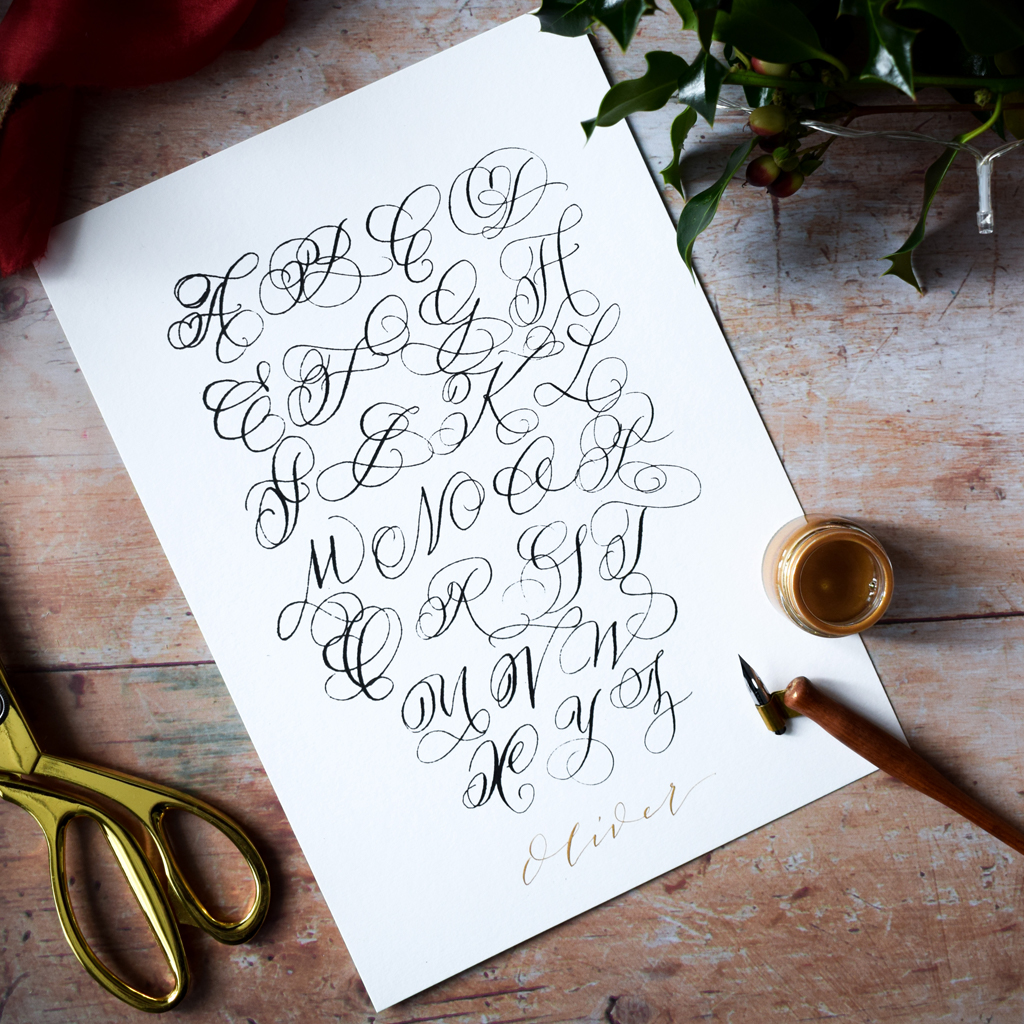 A B C D
E F G H
I J K L
M N O P
Q R S T
U V W
X Y Z
Oliver